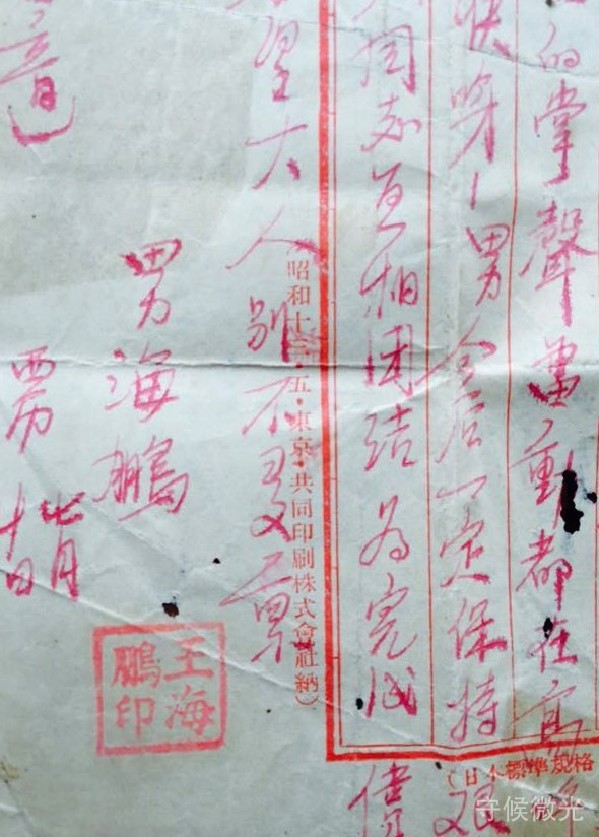 的掌聲雷動都在高
男今后一定保持
同志互相团结为完成
（日本標準規格
昭和十三・五・東京・共同印刷株式會社納）
望大人别不
男海鵬
西历七月
十日
王海
鵬印
守候微光